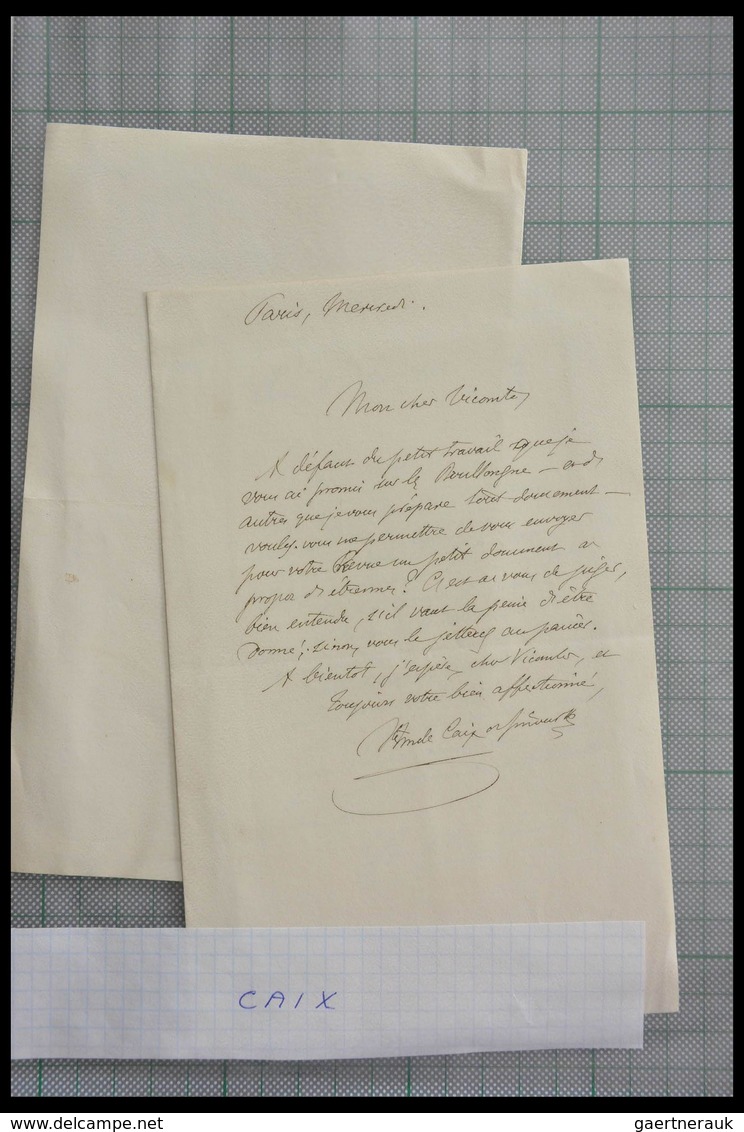 Paris, Mercredi.
Mon cher Vicomte,
A défaut du petit travail que je
vous ai promis sur les Boullongne — et d'
autres que je vous prépare tout doucement —
voulez-vous me permettre de vous envoyer
pour votre Revue un petit document à
propos d'étrennes? C'est à vous de juger,
bien entendu, s'il vaut la peine d'être
donné; sinon, vous le jetterez au panier.
A bientôt, j'espère, cher Vicomte, et
toujours votre bien affectionné,
de Caix de
CAIX
gaertnerauk